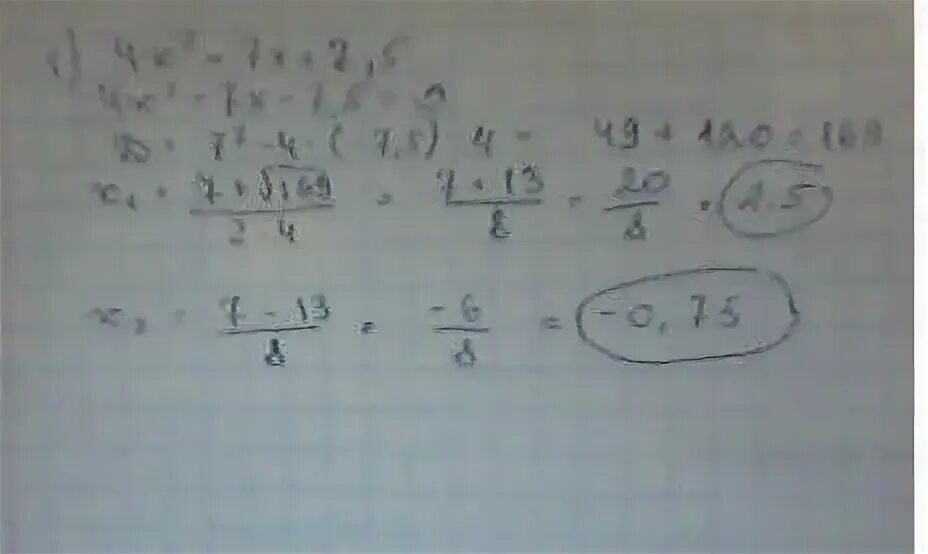 4x² - 7x = 7,5
4x² - 7x - 7,5 = 0
D = 7² - 4 · ( 7,5) 4 = 49 + 120 = 169
x₁ = 7 + √169 / 2 · 4 = 7 + 13 / 8 = 20 / 8 = 2.5
x₂ = 7 - 13 / 8 = -6 / 8 = -0,75